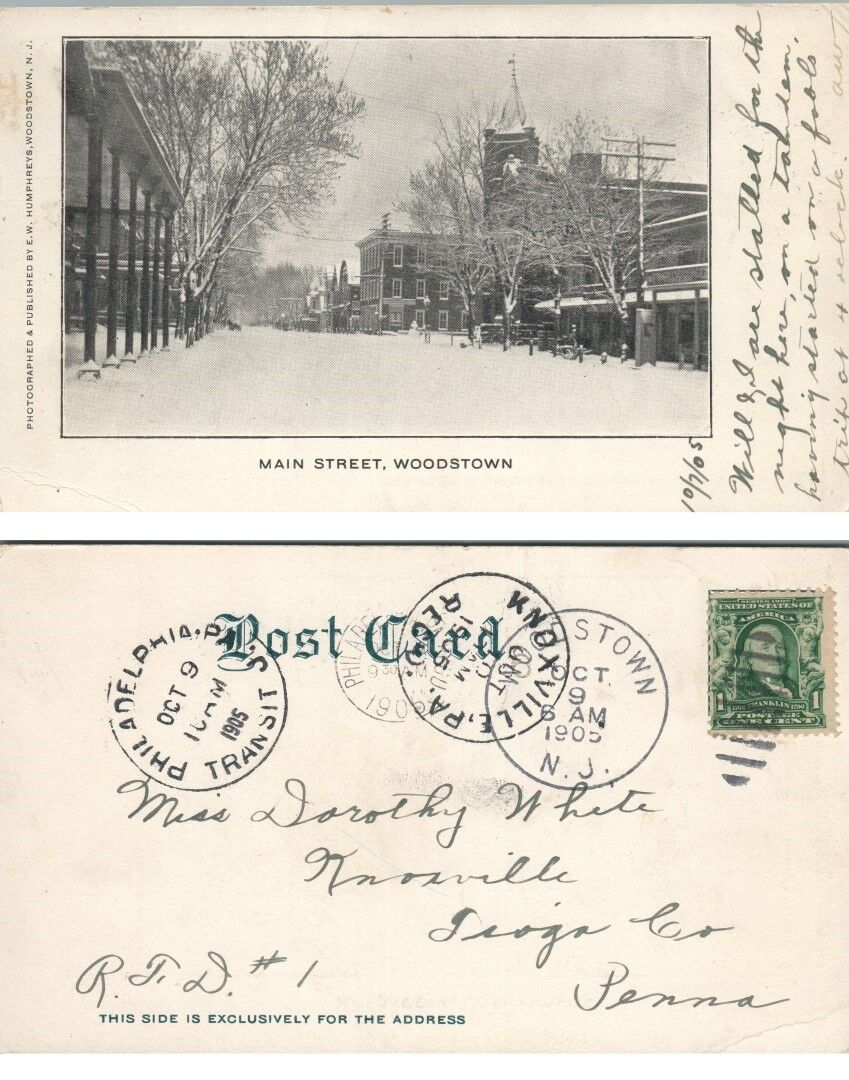 PHOTOGRAPHED & PUBLISHED BY E.W. HUMPHREYS, WOODSTOWN, N. J.
MAIN STREET, WOODSTOWN
10/7/05
Will & I are stalled for the
night here, on a tandem,
having started on a fools
trip at 4 oclock
Post Card
PHILADELPHIA, PA.
OCT 9
10 AM
1905
TRANSIT
PHILAD
9 30 AM
1905
KNOXVILLE, PA.
OCT
10
AM
1905
REC'D.
STOWN
OCT.
9
6 AM
1905
N. J.
SERIES 1902
UNITED STATES OF
AMERICA
1 FRANKLIN 1790 1
POSTAGE
ONE CENT
Miss Dorothy White
Knoxville
Tioga Co
Penna
R.F.D. # 1
THIS SIDE IS EXCLUSIVELY FOR THE ADDRESS